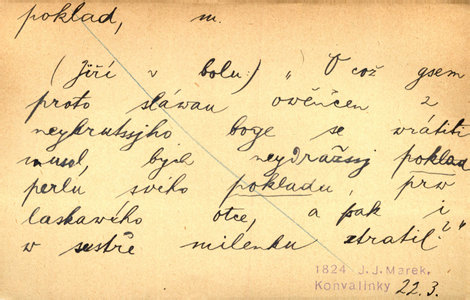 poklad, m.
(Jiří v bolu:) „O což gsem
proto sláwau owěnčen z
neykrutssjho boge se wrátiti
musel, bych neydražssj poklad
perlu svého pokladu, prw
laskawého otce, a pak i
w sestře milenku ztratil?“
1824 J. J. Marek,
Konvalinky 22.3.